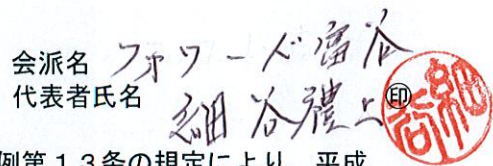 会派名 フォワード富谷
代表者氏名 細谷禮二 ㊞
細谷
例第13条の規定により、平成